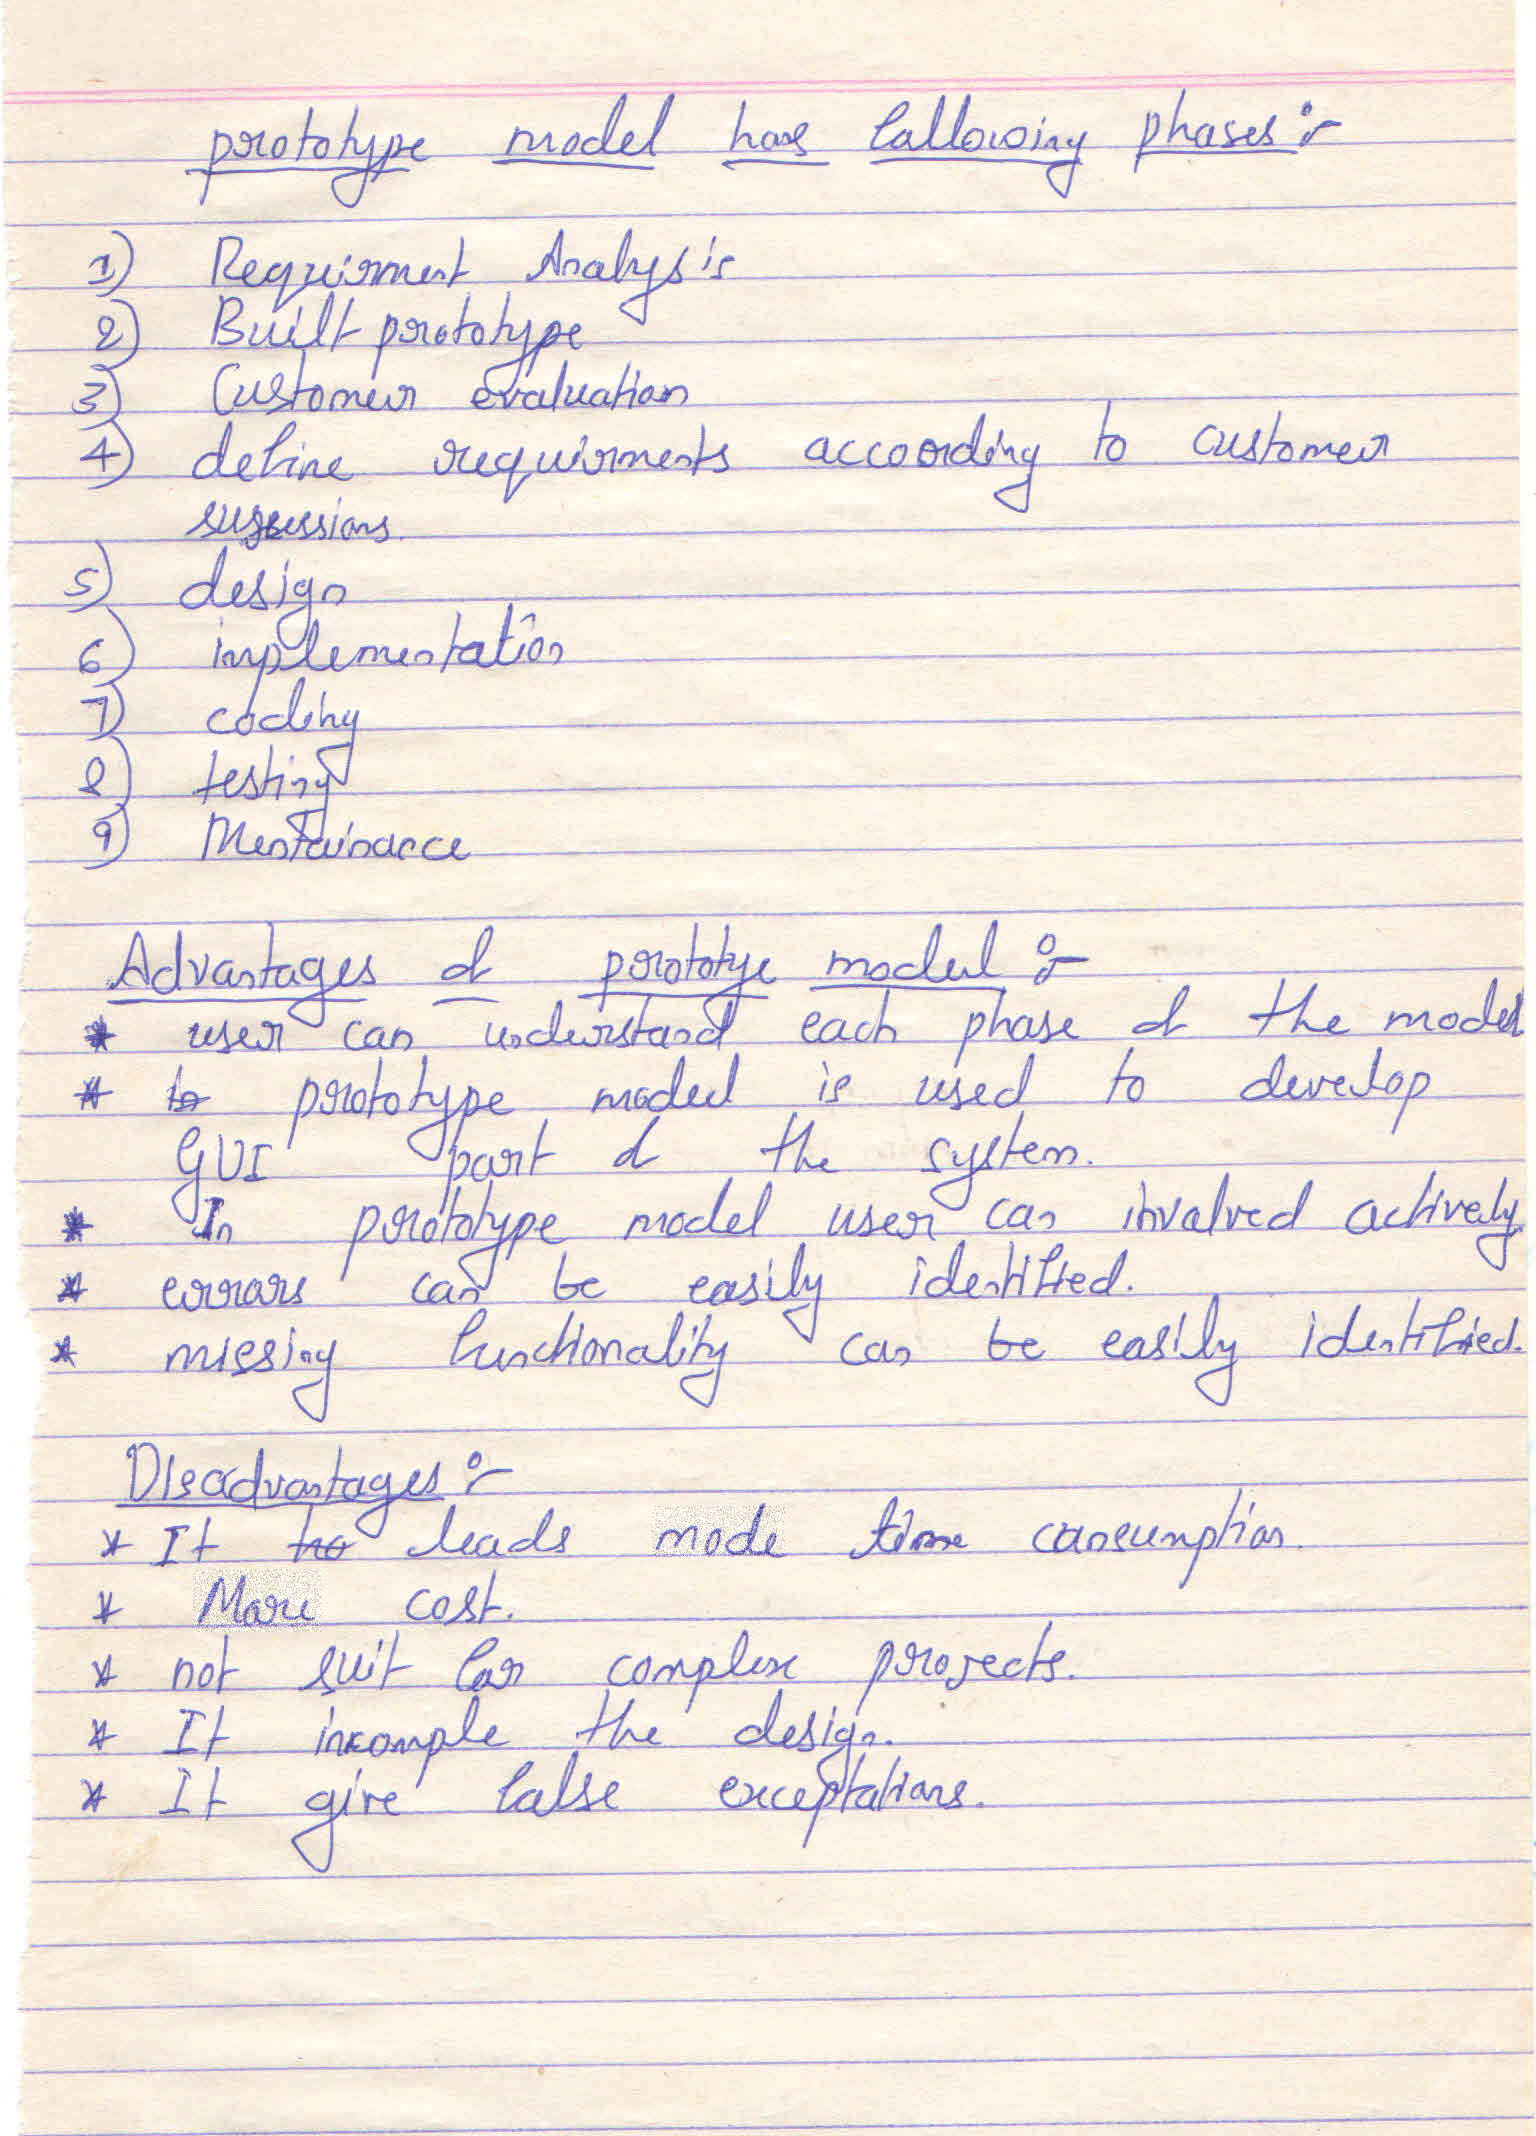 prototype model has following phases:-
1) Requirment Analysis
2) Built prototype
3) Customer evaluation
4) define requirments according to customer
suggessions.
5) design
6) implementation
7) coding
8) testing
9) Mentainance
Advantages of prototye model :-
* user can understand each phase of the model
* to prototype model is used to develop
GUI part of the system.
* In prototype model user can involved actively.
* errors can be easily identified.
* missing functionality can be easily identified.
Disadvantages :-
* It leads mode time consumption.
* More cost.
* not suit for complex projects.
* It incomple the design.
* It give false exceptations.